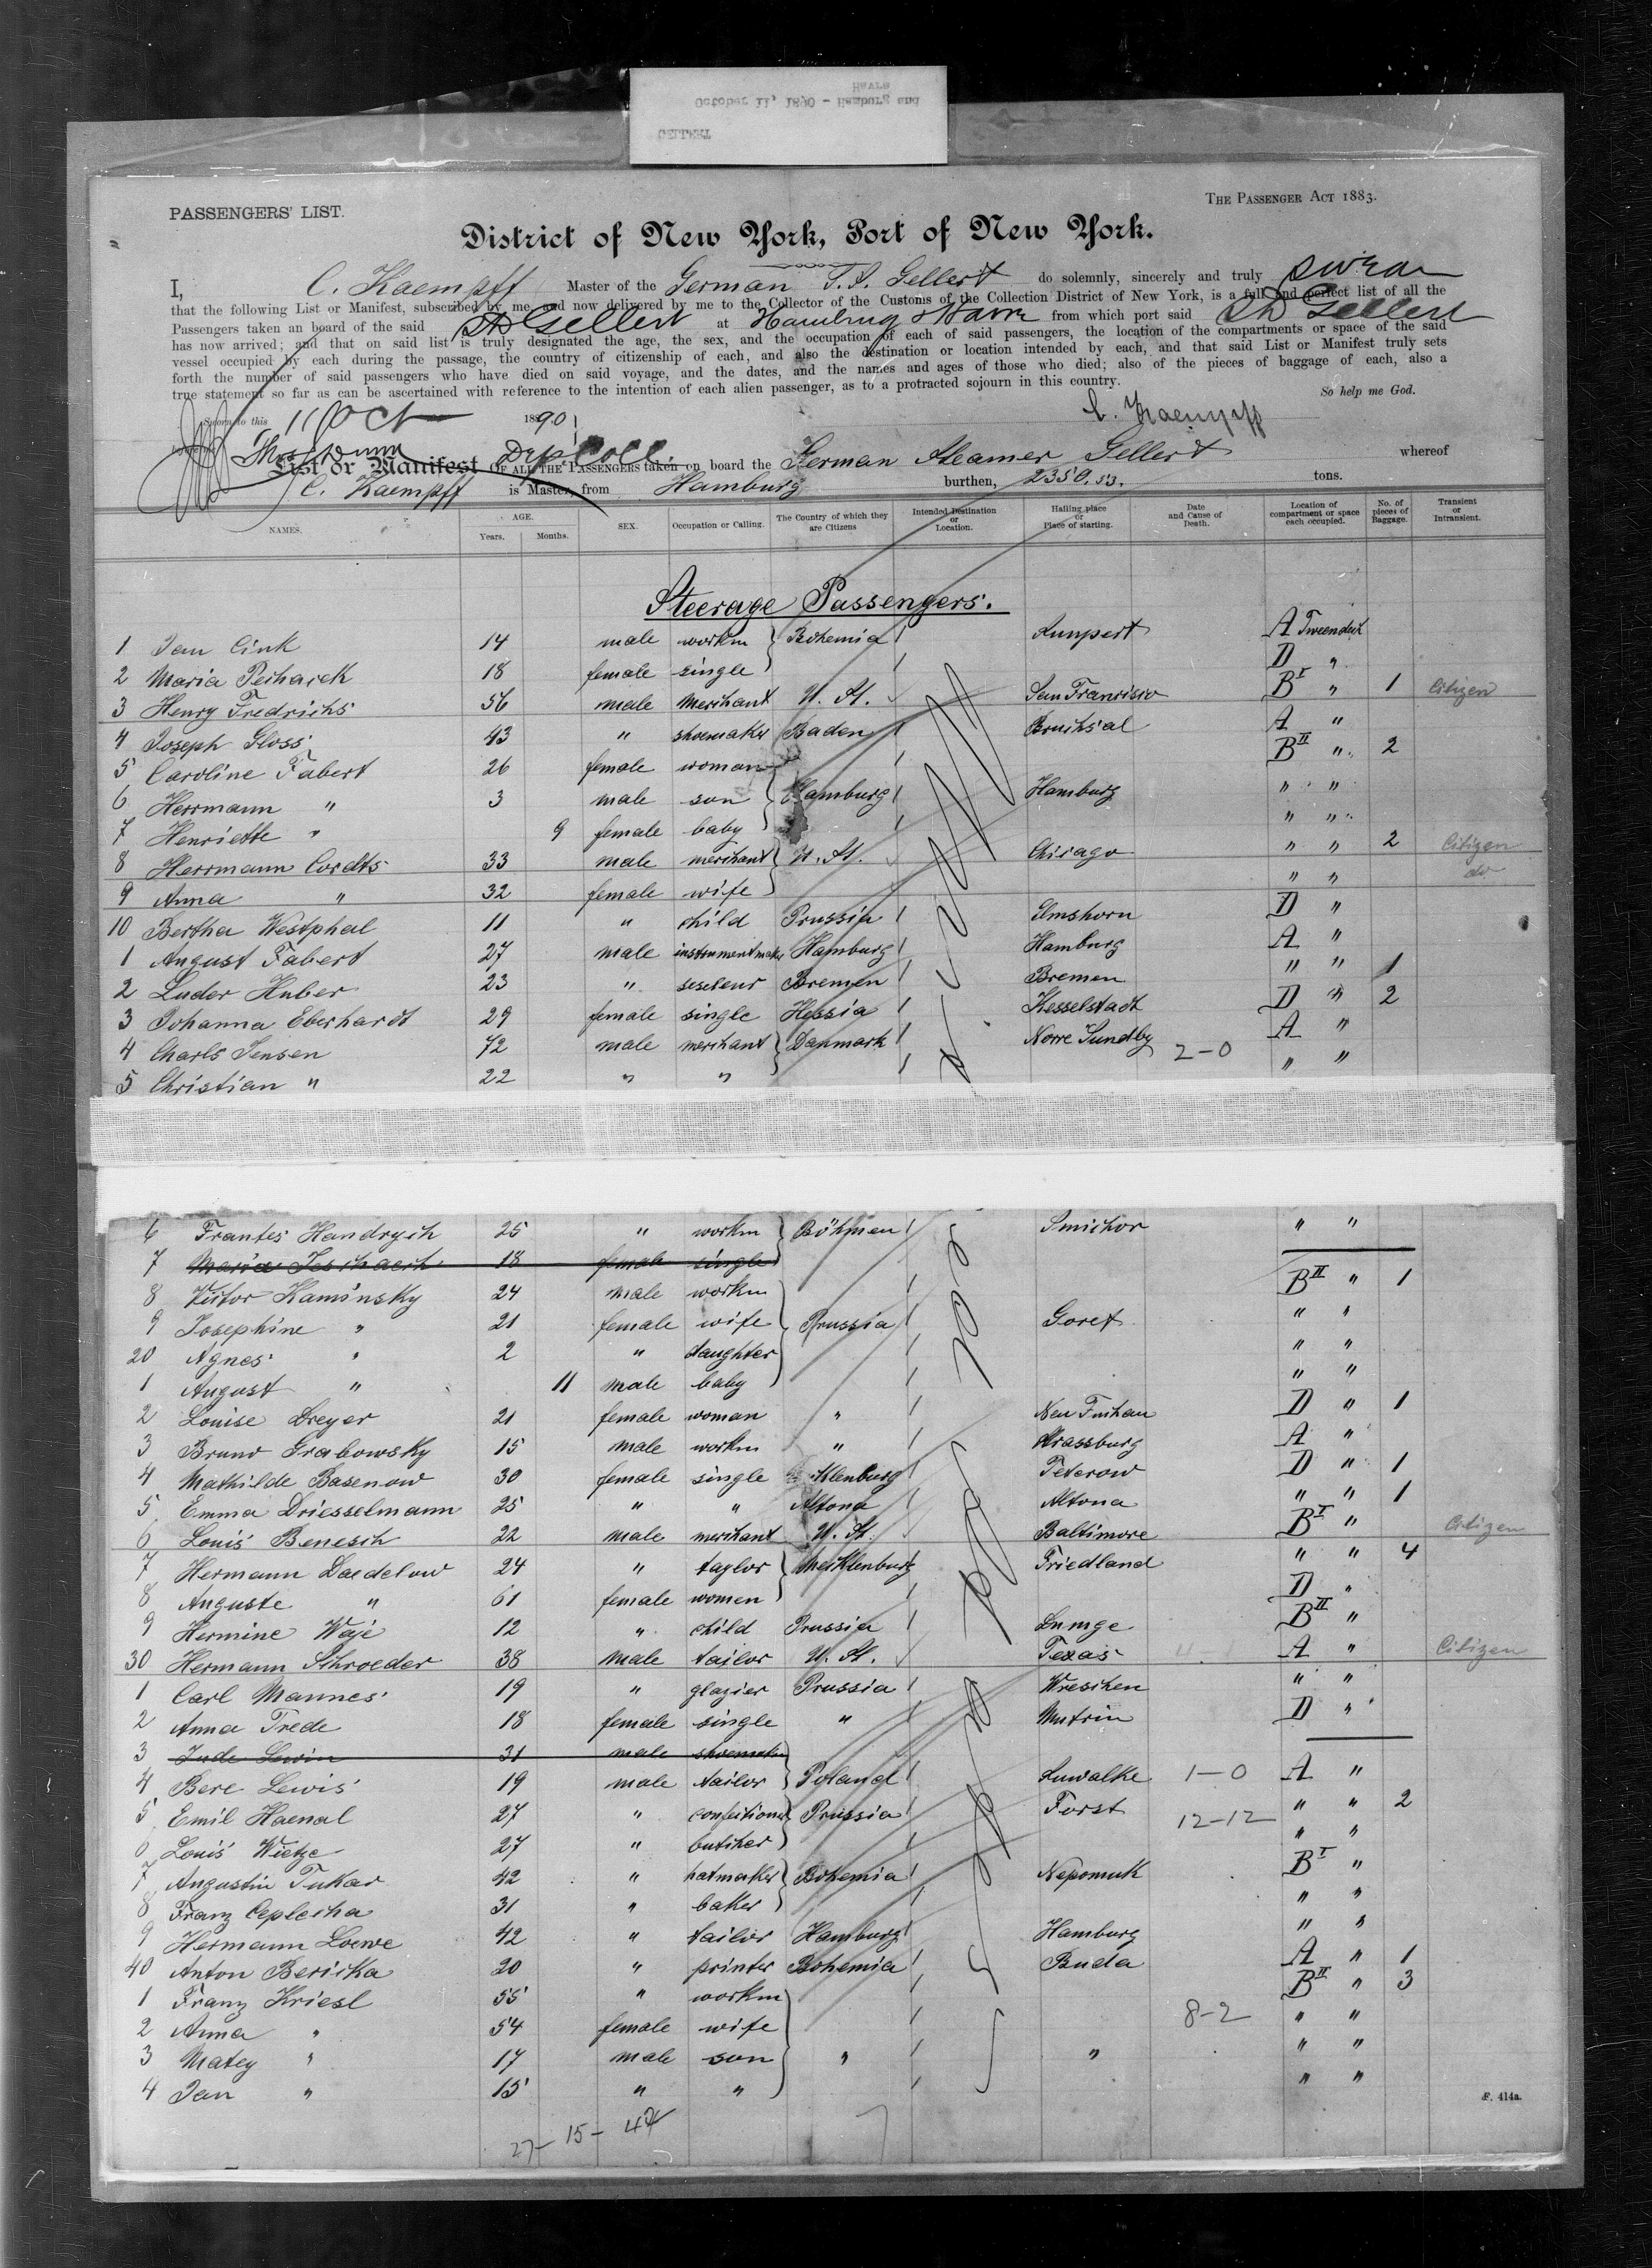 GELLERT
October 11, 1890 - Hamburg and
Havre
PASSENGERS' LIST.
THE PASSENGER ACT 1883.
District of New York, Port of New York.
I, C. Kaempff Master of the German S.S. Gellert do solemnly, sincerely and truly swear
that the following List or Manifest, subscribed by me and now delivered by me to the Collector of the Customs of the Collection District of New York, is a full and perfect list of all the
Passengers taken on board of the said SS Gellert at Hamburg & Havre from which port said SS Gellert
has now arrived; and that on said list is truly designated the age, the sex, and the occupation of each of said passengers, the location of the compartments or space of the said
vessel occupied by each during the passage, the country of citizenship of each, and also the destination or location intended by each, and that said List or Manifest truly sets
forth the number of said passengers who have died on said voyage, and the dates, and the names and ages of those who died; also of the pieces of baggage of each, also a
true statement so far as can be ascertained with reference to the intention of each alien passenger, as to a protracted sojourn in this country.
So help me God.
Sworn to this 11 Oct 1890
C. Kaempff
Dep Coll.
List or Manifest OF ALL THE PASSENGERS taken on board the German Steamer Gellert whereof
C. Kaempff is Master, from Hamburg burthen, 2350.53. tons.
NAMES. AGE. Years. Months. SEX. Occupation or Calling. The Country of which they are Citizens Intended Destination or Location. Hailing place or Place of starting. Date and Cause of Death. Location of compartment or space each occupied. No. of pieces of Baggage. Transient or Intransient.
Steerage Passengers.
1 Jan Cink 14 male workm Bohemia Kunpert A Tweendeck
2 Maria Pecharek 18 female single D "
3 Henry Fredrichs 56 male merchant U. St. San Francisco B I " 1 Citizen
4 Joseph Gloss 43 " shoemaker Baden Bruchsal A "
5 Caroline Fabert 26 female woman B II " 2
6 Herrmann " 3 male son Hamburg Hamburg " "
7 Henriette " 9 female baby " "
8 Herrmann Cordts 33 male merchant U. St. Chicago " " 2 Citizen
9 Anna " 32 female wife " " do
10 Bertha Westphal 11 " child Prussia Elmshorn D "
1 August Fabert 27 male instrumentmaker Hamburg Hamburg A "
2 Luder Huber 23 " Bremen Bremen " " 1
3 Johanna Eberhardt 29 female single Hessia Kesselstadt D " 2
4 Charls Jensen 72 male merchant Danmark Norre Sundby 2-0 A "
5 Christian " 22 " " " "
6 Frantes Handrych 25 " workm Böhmen Smichov " "
7 Maria 18 female single
8 Victor Kaminsky 24 male workm B II " 1
9 Josephine " 21 female wife Prussia Goret " "
20 Agnes " 2 " daughter " "
1 August " 11 male baby " "
2 Louise Dreyer 21 female woman " D " 1
3 Bruno Grabowsky 15 male workm " Strassburg A "
4 Mathilde Basenow 30 female single Mecklenburg Teterow D " 1
5 Emma Driesselmann 25 " " Altona Altona " " 1
6 Louis Benesch 22 male merchant U. St. Baltimore B I " Citizen
7 Hermann Daedelow 24 " taylor Mecklenburg Friedland " " 4
8 Auguste " 61 female women D "
9 Hermine Waje 12 " child Prussia Lumge B II "
30 Hermann Schroeder 38 male tailor U. St. Texas A " Citizen
1 Carl Mannes 19 " glazier Prussia Wreschen " "
2 Anna Trede 18 female single " Mutrin D "
3 Jude Lewin 31 male shoemaker
4 Bere Lewis 19 male tailor Poland Suwalke 1-0 A "
5 Emil Haenal 27 " confectioner Prussia Forst 12-12 " " 2
6 Louis Wietze 27 " butcher " "
7 Augustin Tukar 42 " hatmaker Bohemia Nepomuk B I "
8 Franz Ceplecha 31 " baker " "
9 Hermann Loewe 42 " tailor Hamburg Hamburg " "
40 Anton Bericka 20 " printer Bohemia Buda A " 1
1 Franz Kriesl 55 " workm B II " 3
2 Anna " 54 female wife 8-2 " "
3 Matey " 17 male son " " " "
4 Jan " 15 " " " "
F. 414a.
27- 15- 42